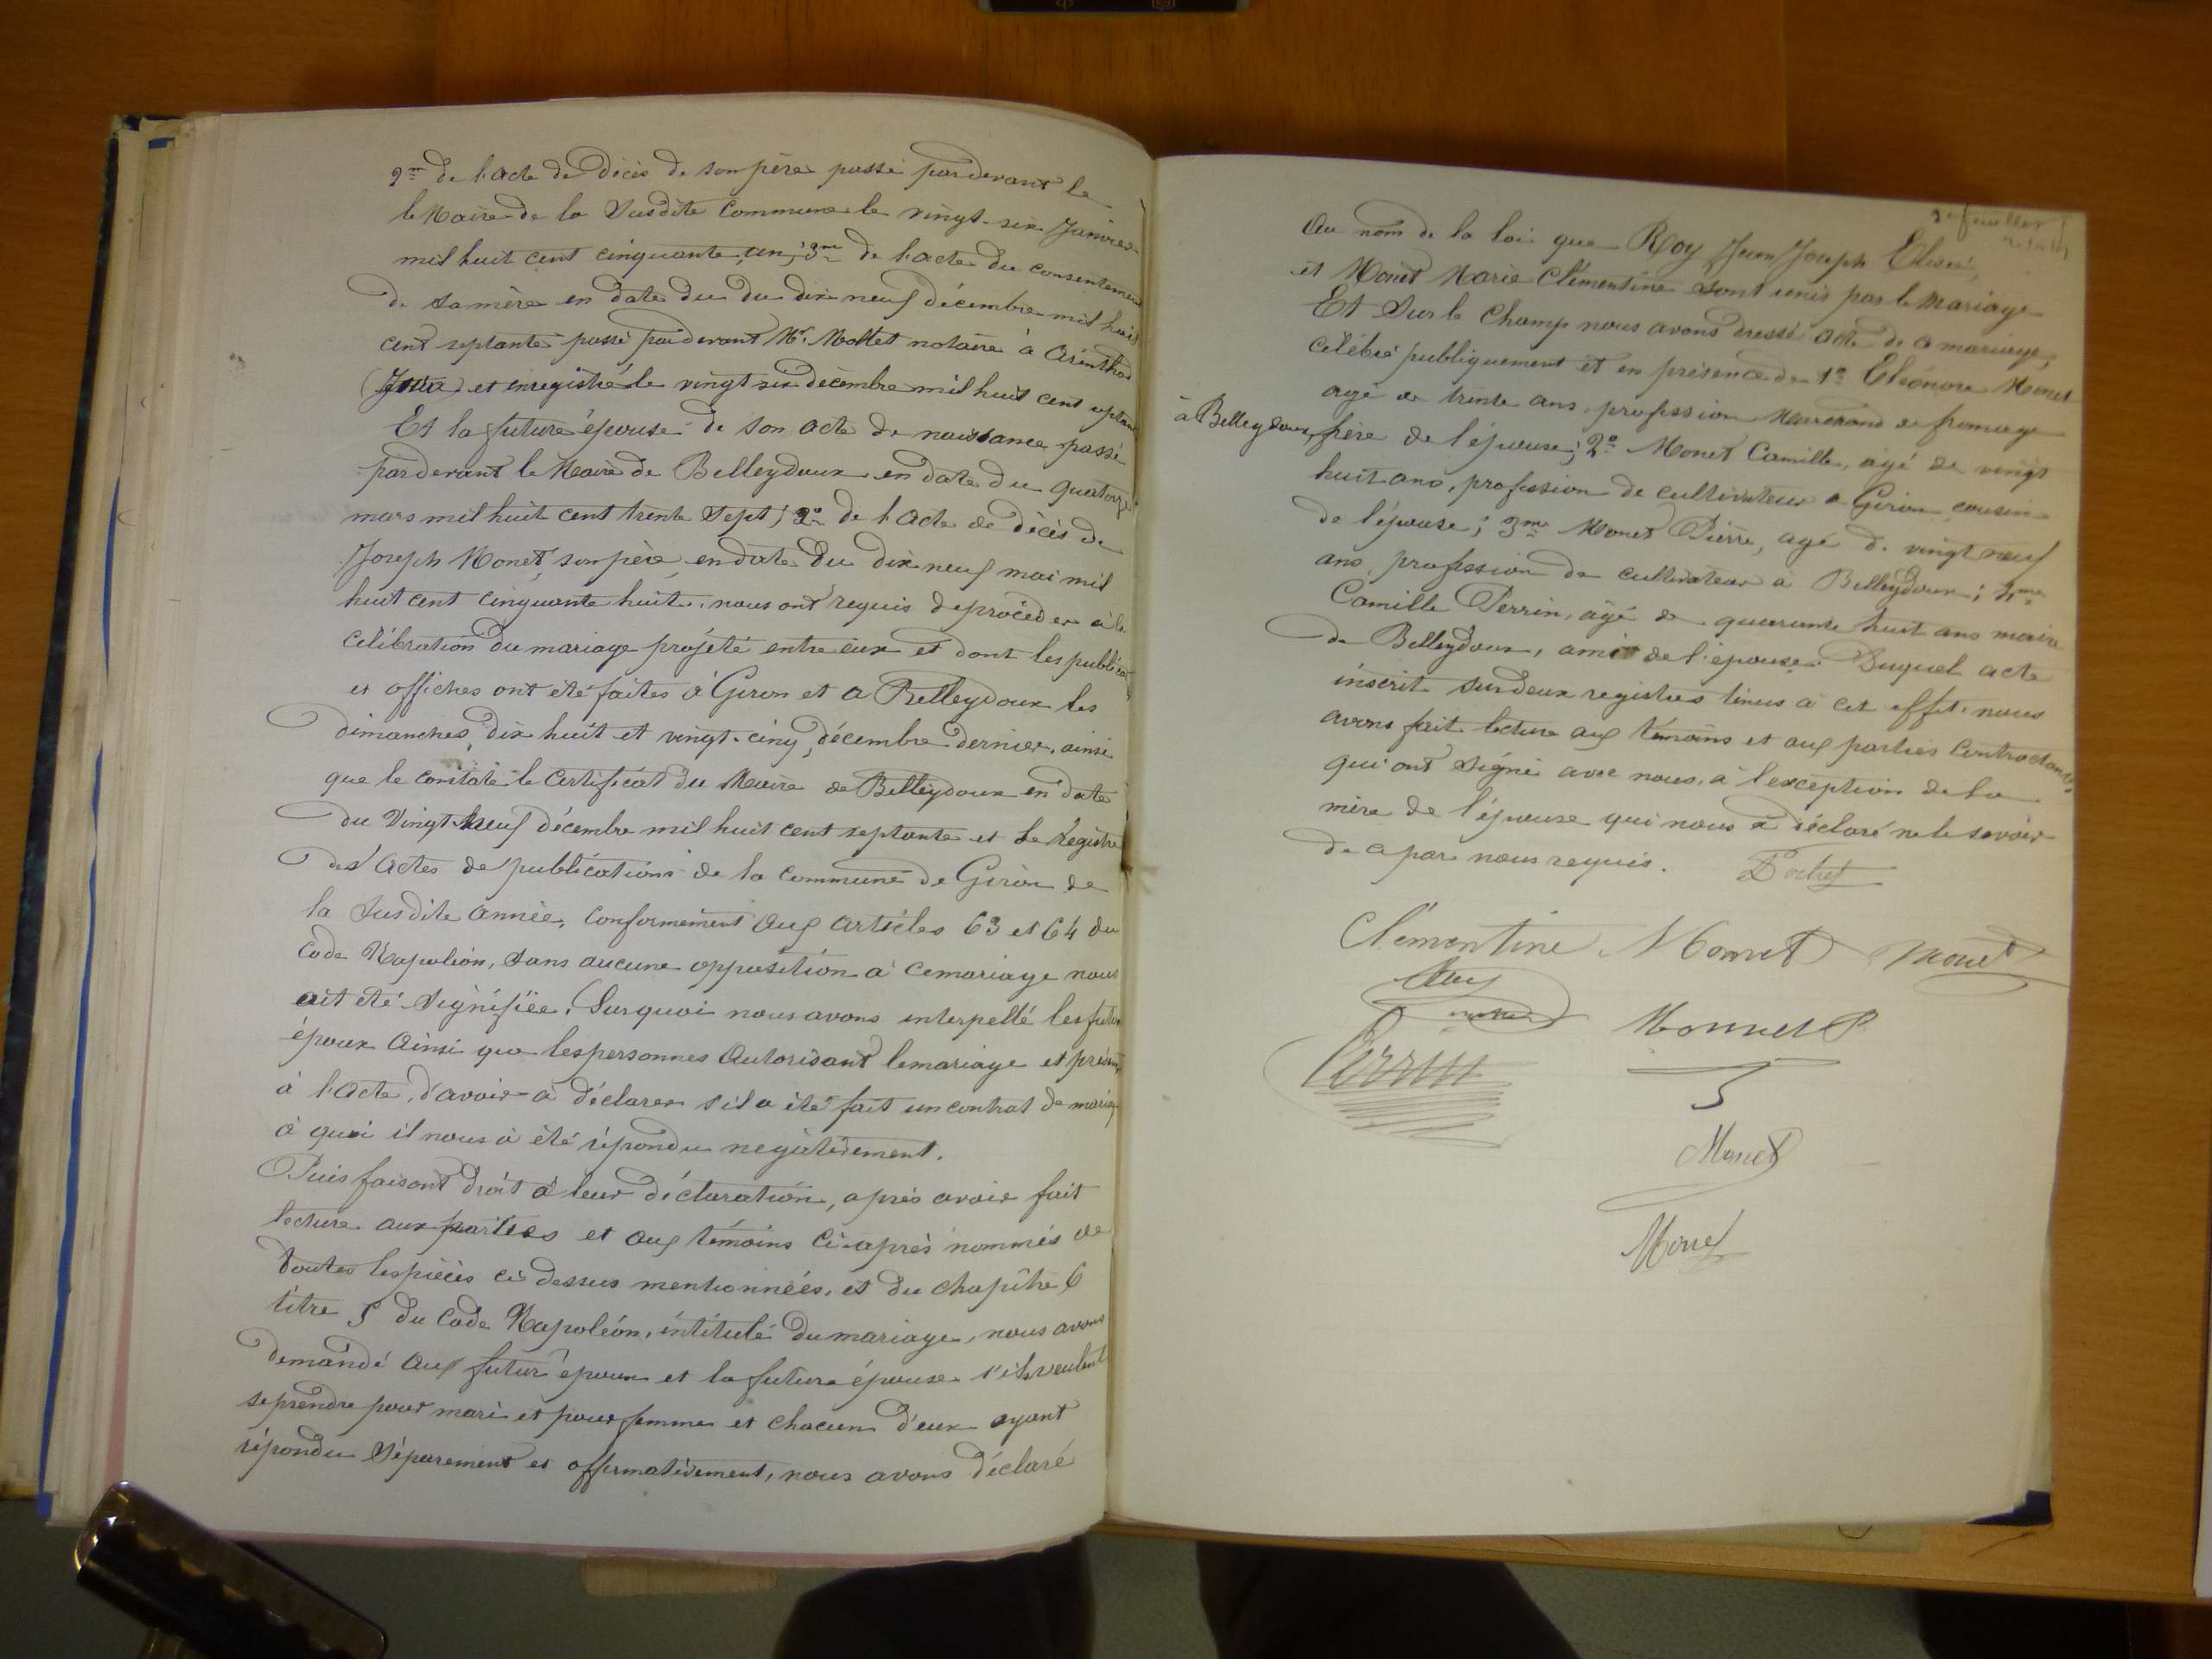 2m de l'acte de décès de son père passé par devant le
le Maire de la Susdite Commune le vingt-six Janvier
mil huit cent cinquante un; 3me de l'acte du consentement
de sa mère en date du du dix neuf décembre mil huit
cent septante passé par devant Mr. Mottet notaire à Arinthod
(Jura) et enregistré le vingt six décembre mil huit cent septante
Et la future épouse de son acte de naissance passé
par devant le Maire de Belleydoux en date du quatorze
mars mil huit cent trente sept; 2° de l'acte de décès de
Joseph Monet, son père, en date du dix neuf mai mil
huit cent cinquante huit, nous ont requis de procéder à la
célébration du mariage projeté entre eux et dont les publica
et affiches ont été faites à Giron et a Belleydoux les
dimanches, dix huit et vingt-cinq, décembre dernier, ainsi
que le constate le certificat du Maire de Belleydoux en date
du Vingt neuf décembre mil huit cent septante et le registre
des Actes de publications de la commune de Giron de
la susdite année, conformément aux articles 63 et 64 du
Code Napoléon, sans aucune opposition à ce mariage nous
ait été signifiée. Sur quoi nous avons interpellé les futurs
époux ainsi que les personnes autorisant le mariage et présent
à l'acte, d'avoir à déclarer s'il a été fait un contrat de mariage
à quoi il nous à été répondu negativement.
Puis faisant droit à leur déclaration, après avoir fait
lecture aux parties et aux témoins ci-après nommés de
toutes les pièces ci dessus mentionnées, et du chapitre 6
titre 5 du Code Napoléon, intitulé du mariage, nous avons
demandé aux futur époux et la future épouse s'ils veulent
se prendre pour mari et pour femme et chacun d'eux ayant
répondu séparement et affirmativement, nous avons déclaré
3e feuillet
au nom de la loi que Roy Jean Joseph Elisée,
et Monet Marie Clémentine sont unis par le mariage
Et sur le champ nous avons dressé acte de ce mariage,
célébré publiquement et en présence de 1° Eléonore Monet
agé de trente ans, profession Marchand de fromage
à Belleydoux, frère de l'épouse; 2° Monet Camille, âgé de vingt
huit ans, profession de cultivateur a Giron cousin
de l'épouse; 3me Monet Pierre, agé de vingt neuf
ans, profession de cultivateur a Belleydoux; 4me
Camille Perrin, âgé de quarante huit ans maire
de Belleydoux, ami de l'épouse. Duquel acte
inscrit sur deux registres tenus à cet effet, nous
avons fait lecture aux témoins et aux parties contractantes,
qui ont signé avec nous, à l'exception de la
mère de l'épouse qui nous a déclaré ne le savoir
de ce par nous requis.
Clémentine Monet Monet
Roy
Monnet P.
Perrin
Monet
Monet